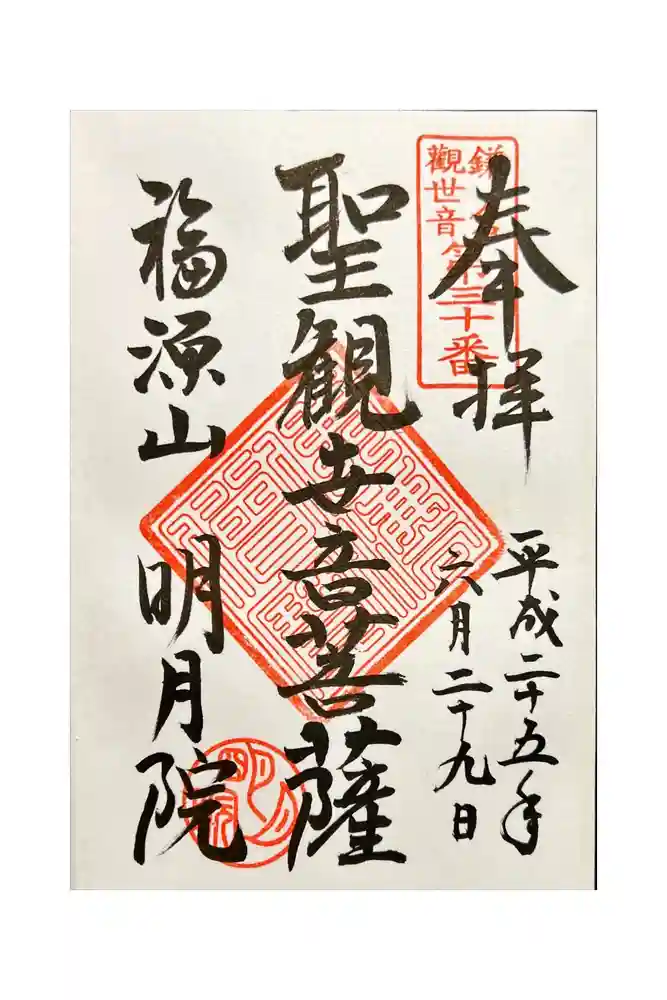 奉拝
平成二十五年
六月二十九日
鎌倉
觀世音
第三十番
聖観世音菩薩
福源山 明月院